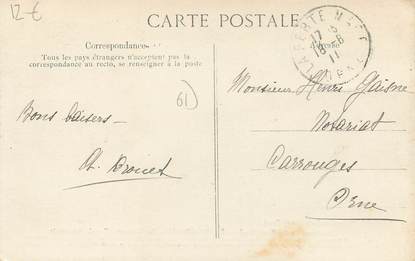 12-€
CARTE POSTALE
Correspondance
Tous les pays étrangers n'acceptent pas la
correspondance au recto, se renseigner à la poste
LA FERTE MACE
17 5
8-6
11
ORNE
61)
Monsieur Henri Gaisne
Notariat
Carrouges
Orne
Bons baisers -